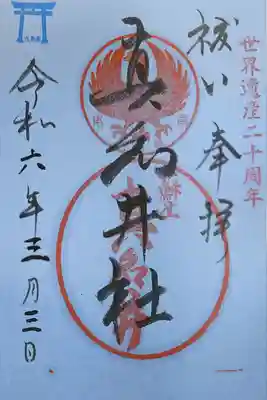 世界遺産二十周年
祓い 奉拝
真名井社
令和六年三月三日